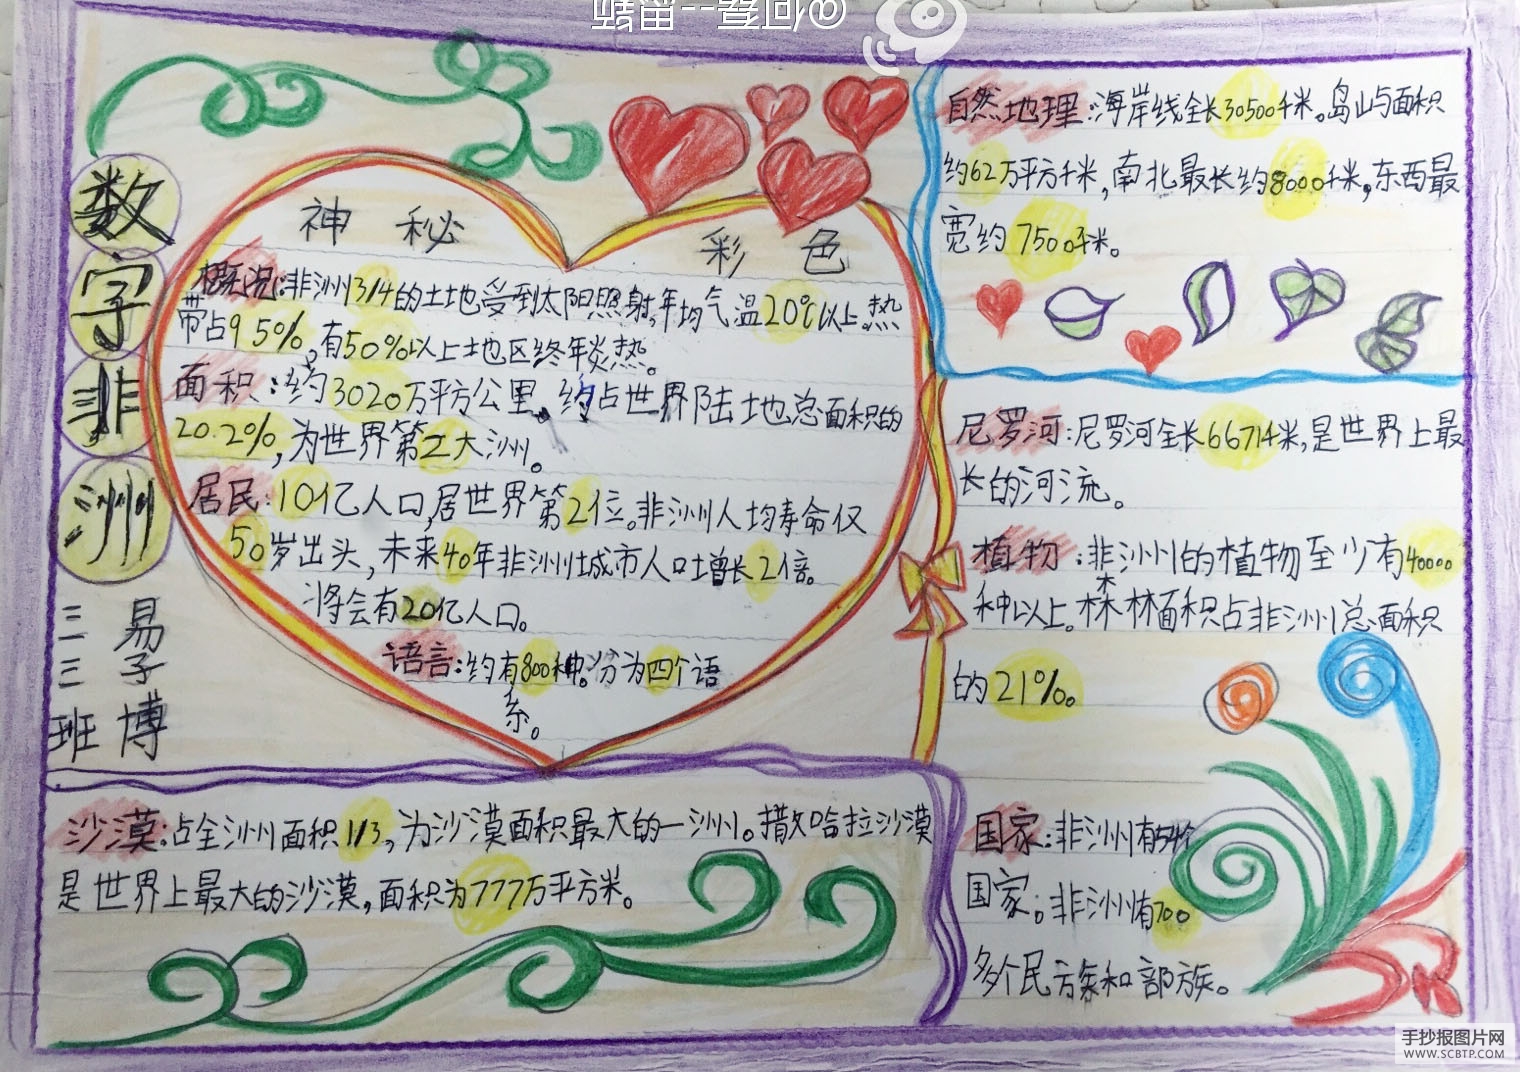 数字非洲
三三班
易子博
神秘 彩色
概况:非洲3/4的土地受到太阳照射,年均气温20℃以上。热
带占95%,有50%以上地区终年炎热。
面积:约3020万平方公里。约占世界陆地总面积的
20.2%,为世界第二大洲。
居民:10亿人口,居世界第2位。非洲人均寿命仅
50岁出头,未来40年非洲城市人口增长2倍。
将会有20亿人口。
语言:约有800种。分为四个语
系。
自然地理:海岸线全长30500千米。岛屿与面积
约62万平方千米,南北最长约8000千米,东西最
宽约7500千米。
尼罗河:尼罗河全长6671千米,是世界上最
长的河流。
植物:非洲的植物至少有40000
种以上。森林面积占非洲总面积
的21%。
沙漠:占全洲面积1/3,为沙漠面积最大的一洲。撒哈拉沙漠
是世界上最大的沙漠,面积为777万平方米。
国家:非洲有54个
国家。非洲有700
多个民族和部族。
手抄报图片网
WWW.SCBTP.COM